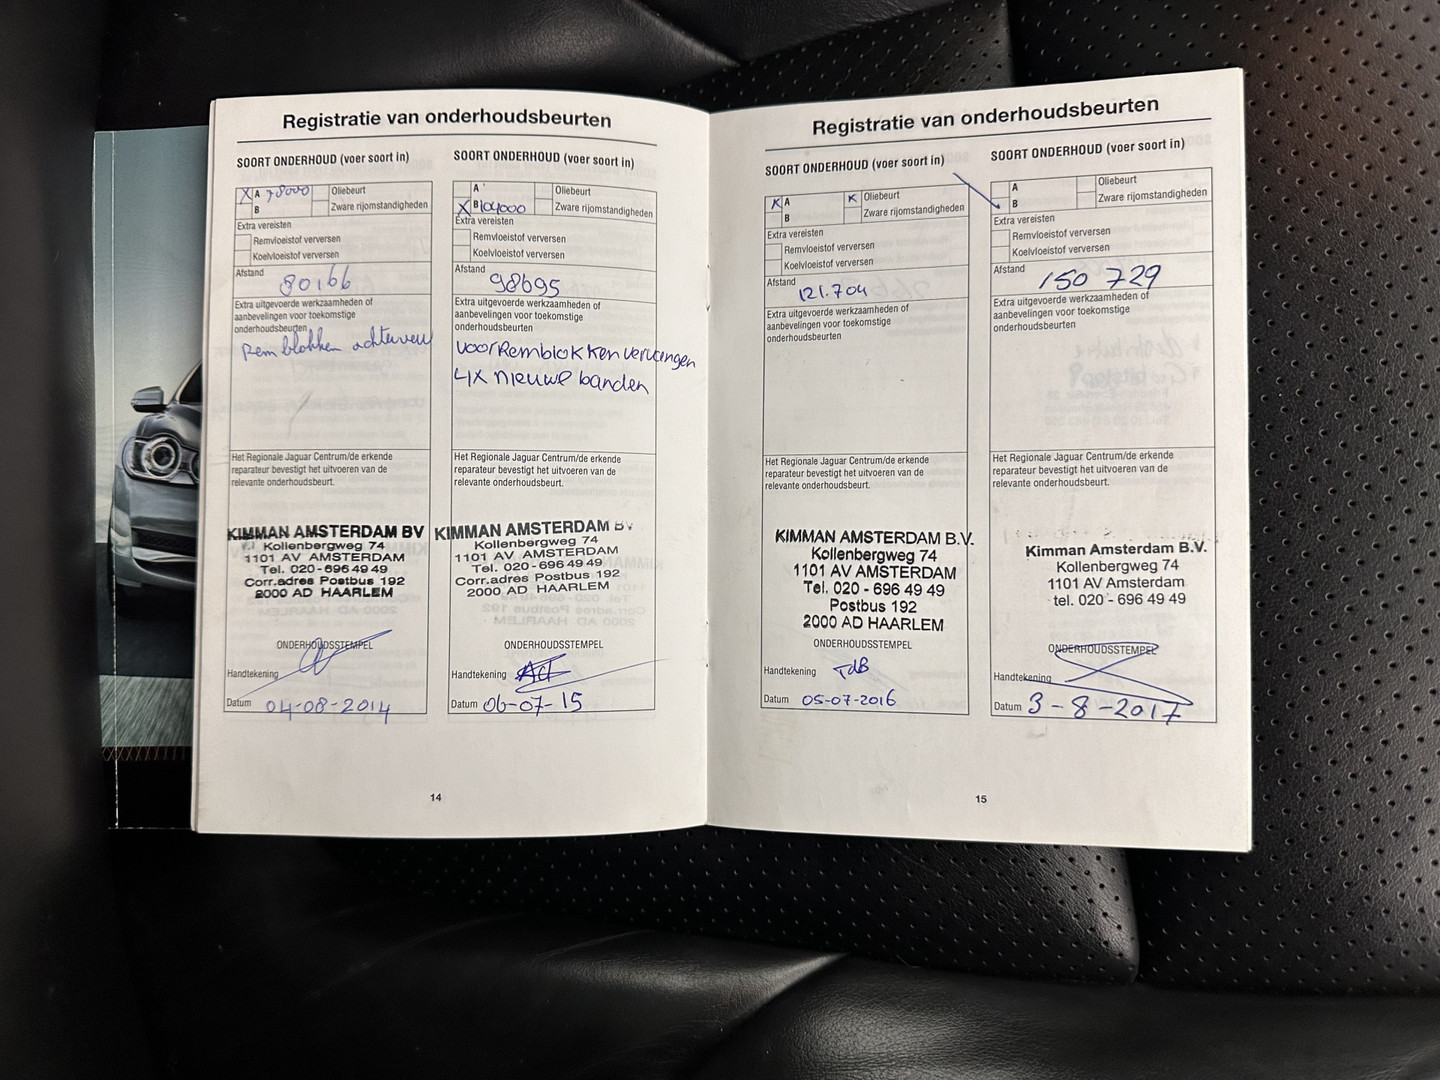 Registratie van onderhoudsbeurten
SOORT ONDERHOUD (voer soort in)
X A 78000 Oliebeurt
B Zware rijomstandigheden
Extra vereisten
Remvloeistof verversen
Koelvloeistof verversen
Afstand
80166
Extra uitgevoerde werkzaamheden of
aanbevelingen voor toekomstige
onderhoudsbeurten
Remblokken achter
Het Regionale Jaguar Centrum/de erkende
reparateur bevestigt het uitvoeren van de
relevante onderhoudsbeurt.
KIMMAN AMSTERDAM BV
Kollenbergweg 74
1101 AV AMSTERDAM
Tel. 020-696 49 49
Corr.adres Postbus 192
2000 AD HAARLEM
ONDERHOUDSSTEMPEL
Handtekening
Datum 04-08-2014
SOORT ONDERHOUD (voer soort in)
A Oliebeurt
X B 104000 Zware rijomstandigheden
Extra vereisten
Remvloeistof verversen
Koelvloeistof verversen
Afstand
98695
Extra uitgevoerde werkzaamheden of
aanbevelingen voor toekomstige
onderhoudsbeurten
voor Remblokken vervangen
4x nieuwe banden
Het Regionale Jaguar Centrum/de erkende
reparateur bevestigt het uitvoeren van de
relevante onderhoudsbeurt.
KIMMAN AMSTERDAM BV
Kollenbergweg 74
1101 AV AMSTERDAM
Tel. 020-696 49 49
Corr.adres Postbus 192
2000 AD HAARLEM
ONDERHOUDSSTEMPEL
Handtekening
Datum 06-07-15
14
Registratie van onderhoudsbeurten
SOORT ONDERHOUD (voer soort in)
X A X Oliebeurt
B Zware rijomstandigheden
Extra vereisten
Remvloeistof verversen
Koelvloeistof verversen
Afstand
121.704
Extra uitgevoerde werkzaamheden of
aanbevelingen voor toekomstige
onderhoudsbeurten
Het Regionale Jaguar Centrum/de erkende
reparateur bevestigt het uitvoeren van de
relevante onderhoudsbeurt.
KIMMAN AMSTERDAM B.V.
Kollenbergweg 74
1101 AV AMSTERDAM
Tel. 020 - 696 49 49
Postbus 192
2000 AD HAARLEM
ONDERHOUDSSTEMPEL
Handtekening TdB
Datum 05-07-2016
SOORT ONDERHOUD (voer soort in)
A Oliebeurt
B Zware rijomstandigheden
Extra vereisten
Remvloeistof verversen
Koelvloeistof verversen
Afstand 150 729
Extra uitgevoerde werkzaamheden of
aanbevelingen voor toekomstige
onderhoudsbeurten
Het Regionale Jaguar Centrum/de erkende
reparateur bevestigt het uitvoeren van de
relevante onderhoudsbeurt.
Kimman Amsterdam B.V.
Kollenbergweg 74
1101 AV Amsterdam
tel. 020 - 696 49 49
ONDERHOUDSSTEMPEL
Handtekening
Datum 3-8-2017
15